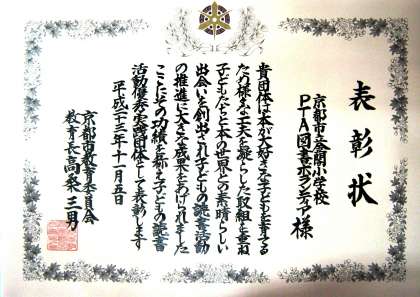 表彰状
京都市立登開小学校
PTA図書ボランティア様
貴団体は本が大好きな子どもを育てる
ため様々な工夫を凝らした取組を重ね
子どもたちと本の世界との素晴らしい
出会いを創出され子どもの読書活動
の推進に大きな成果をあげられました
ここにその功績を称え子どもの読書
活動優秀実践団体として表彰します
平成二十三年十一月五日
京都市教育委員会
教育長高桑三男